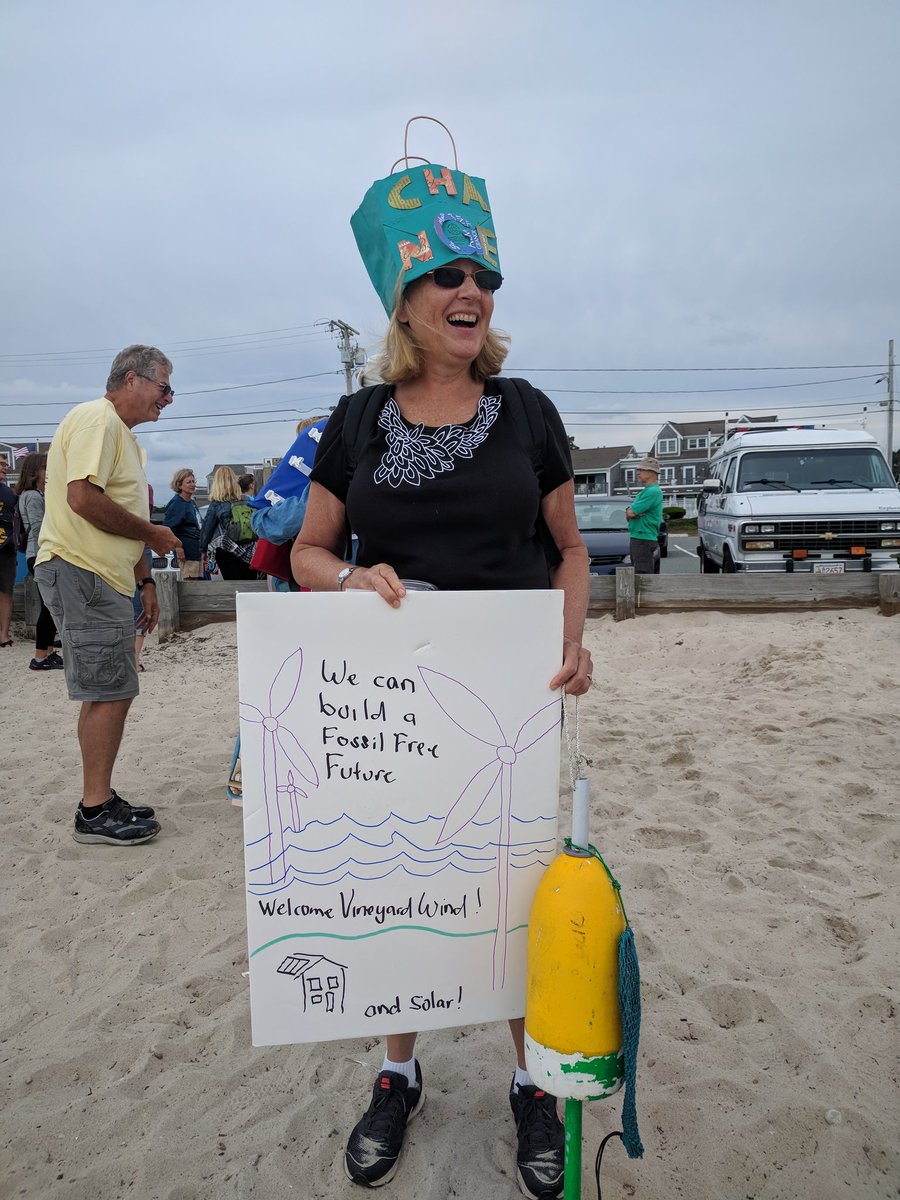 CHA
NGE
We can
build a
Fossil Free
Future
Welcome Vineyard Wind!
and Solar!